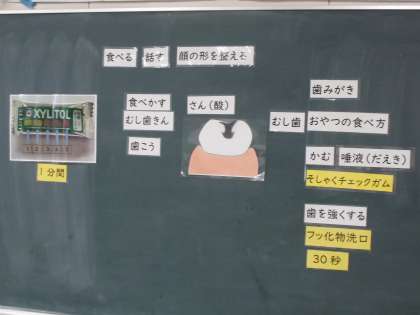 食べる 話す 顔の形を整える
XYLITOL
1分間
食べかす
むし歯きん
歯こう
さん(酸)
むし歯
歯みがき
おやつの食べ方
かむ 唾液(だえき)
そしゃくチェックガム
歯を強くする
フッ化物洗口
30秒